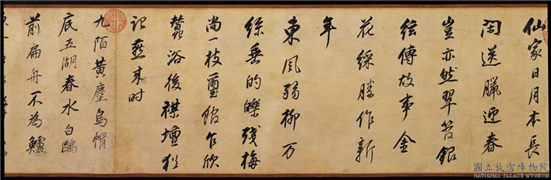 仙家日月本長
閒送臘迎春
豈亦然翠管銀
傳故事金
花綵勝作新
年
東風弱柳万
絲垂的皪殘梅
尚一枝璽館乍欣
蠶浴後禖壇猶
記燕來時
九陌黃塵烏帽
底五湖春水白鷗
前扁舟不為鱸
國立故宮博物院
NATIONAL PALACE MUSEUM